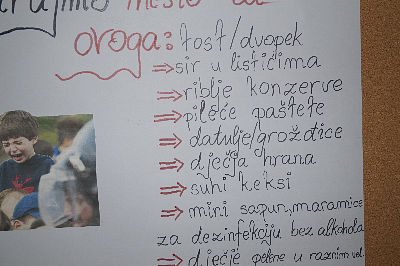 mjesto
ovoga: tost/dvopek
sir u listićima
riblje konzerve
pileće paštete
datulje/grožđice
dječja hrana
suhi keksi
mini sapun, maramice
za dezinfekciju bez alkohola
dječje pelene u raznim vel.